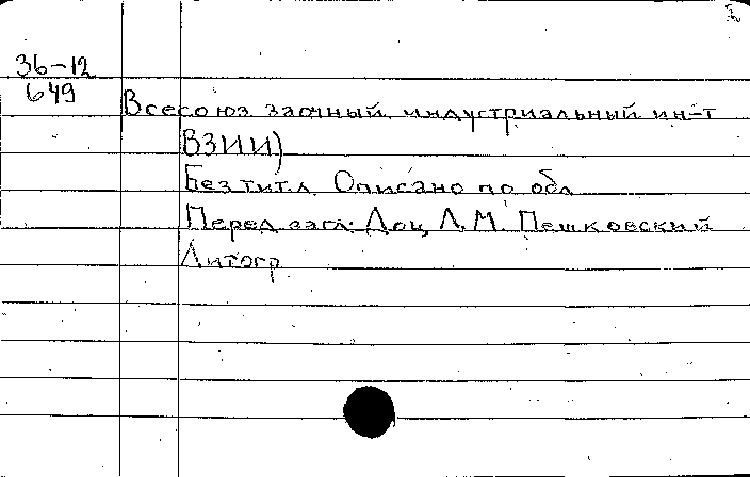 36-12
649
Всесоюз заочный индустриальный ин-т
ВЗИИ)
Без тит.л. Описано по обл
Перед загл: Доц. Л.М. Пешковский
Литогр